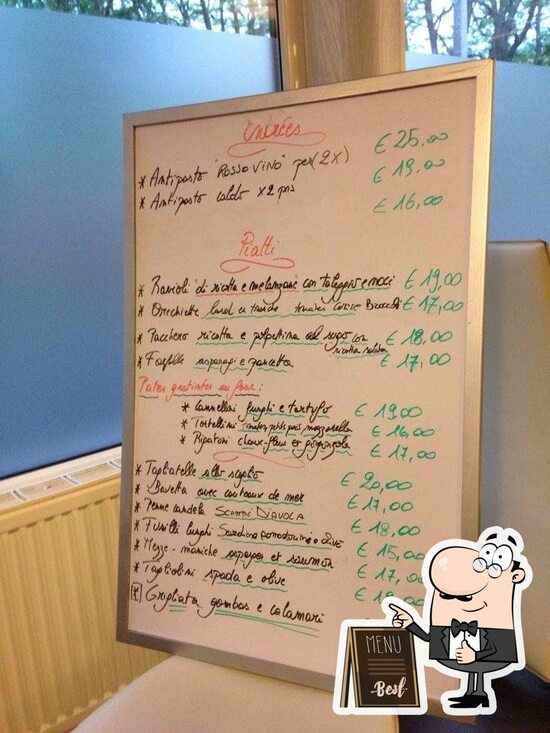 Entrées
€ 25,00
* Antipasto "ROSSO VINO" per (2x) € 19,00
* Antipasto caldo x2 prs € 16,00
Piatti
* Ravioli di ricotta e melanzane con taleggio e noci € 19,00
* Orecchiette € 17,00
* Pacchero ricotta e polpettina al sugo con ricotta salata € 18,00
* Farfalle asparagi e pancetta € 17,00
Pates gratinées au four :
* Cannelloni funghi e tartufo € 19,00
* Tortellini mozzarella € 16,00
* Rigatoni choux-fleur et gorgonzola € 17,00
* Tagliatelle allo scoglio € 20,00
* Bavette avec couteaux de mer € 17,00
* Penne candela SCAMPI DIAVOLA € 18,00
* Fusilli funghi Sardina pomodorino e olive € 15,00
* Mezze-maniche asperges et saumon € 17,00
* Tagliolini spada e olive
* Grigliata gambas e calamari
MENU
Best